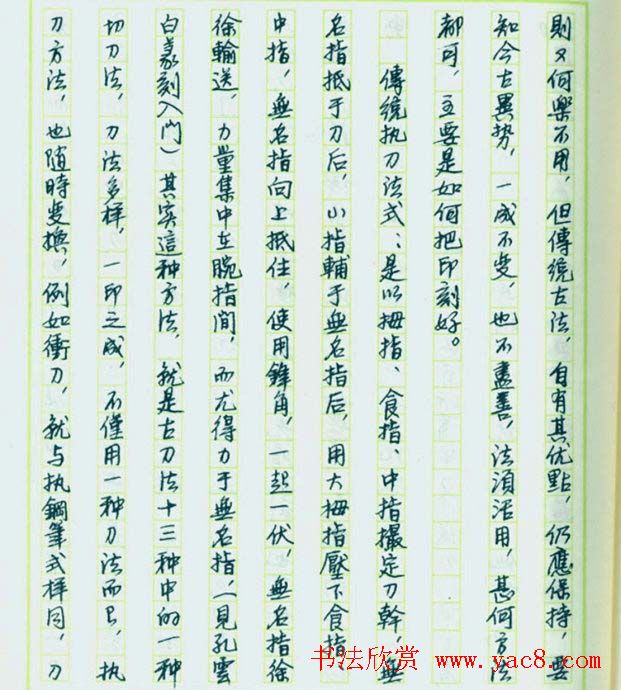 則又何樂不用，但傳統古法，自有其优點，仍應保持，要
知今古異势，一成不变，也不盡善，法須活用，甚何方法
都可，主要是如何把印刻好。
傳統执刀法式：是以拇指、食指、中指撮定刀幹，無
名指抵于刀后，小指輔于無名指后，用大拇指壓下食指、
中指，無名指向上抵住，使用鋒角，一起一伏，無名指徐
徐輸送，力量集中在腕指间，而尤得力于無名指，（見孔雲
白篆刻入门）其实這种方法，就是古刀法十三种中的一种
切刀法，刀法多样，一印之成，不僅用一种刀法而已，执
刀方法，也随時变换，例如衝刀，就与执鋼筆式样同，刀
书法欣赏 www.yac8.com